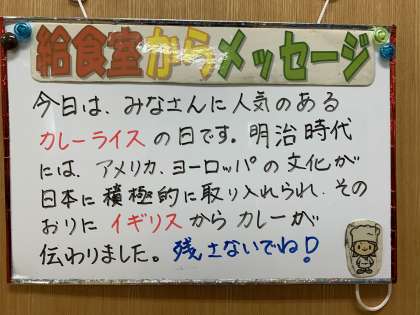 給食室からメッセージ
今日は、みなさんに人気のある
カレーライスの日です。明治時代
には、アメリカ、ヨーロッパの文化が
日本に積極的に取り入れられ、その
おりにイギリスからカレーが
伝わりました。残さないでね!